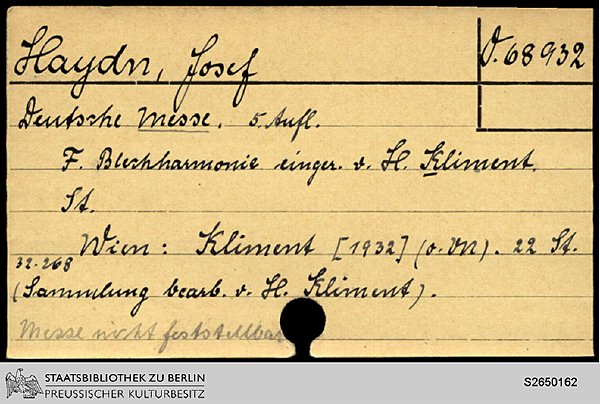 Haydn, Josef
O.68932
Deutsche Messe. 5. Aufl.
F. Blechharmonie einger. v. H. Kliment.
St.
Wien: Kliment [1932] (o. VN). 22 St.
32.268
(Sammlung bearb. v. H. Kliment).
Messe nicht feststellbar
STAATSBIBLIOTHEK ZU BERLIN
PREUSSISCHER KULTURBESITZ
S2650162